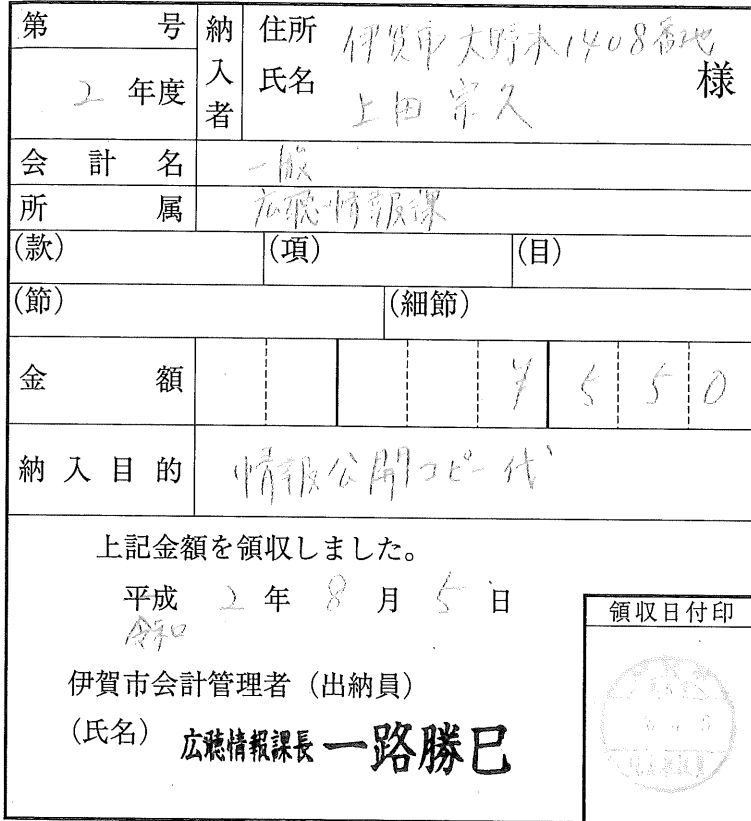 第 号
2 年度
納入者
住所 伊賀市大野木1408番地
氏名 上田宗久 様
会計名 一般
所属 広聴情報課
(款) (項) (目)
(節) (細節)
金額 ¥550
納入目的 情報公開コピー代
上記金額を領収しました。
平成 2 年 8 月 5 日
令和
伊賀市会計管理者（出納員）
(氏名) 広聴情報課長 一路勝巳
領収日付印